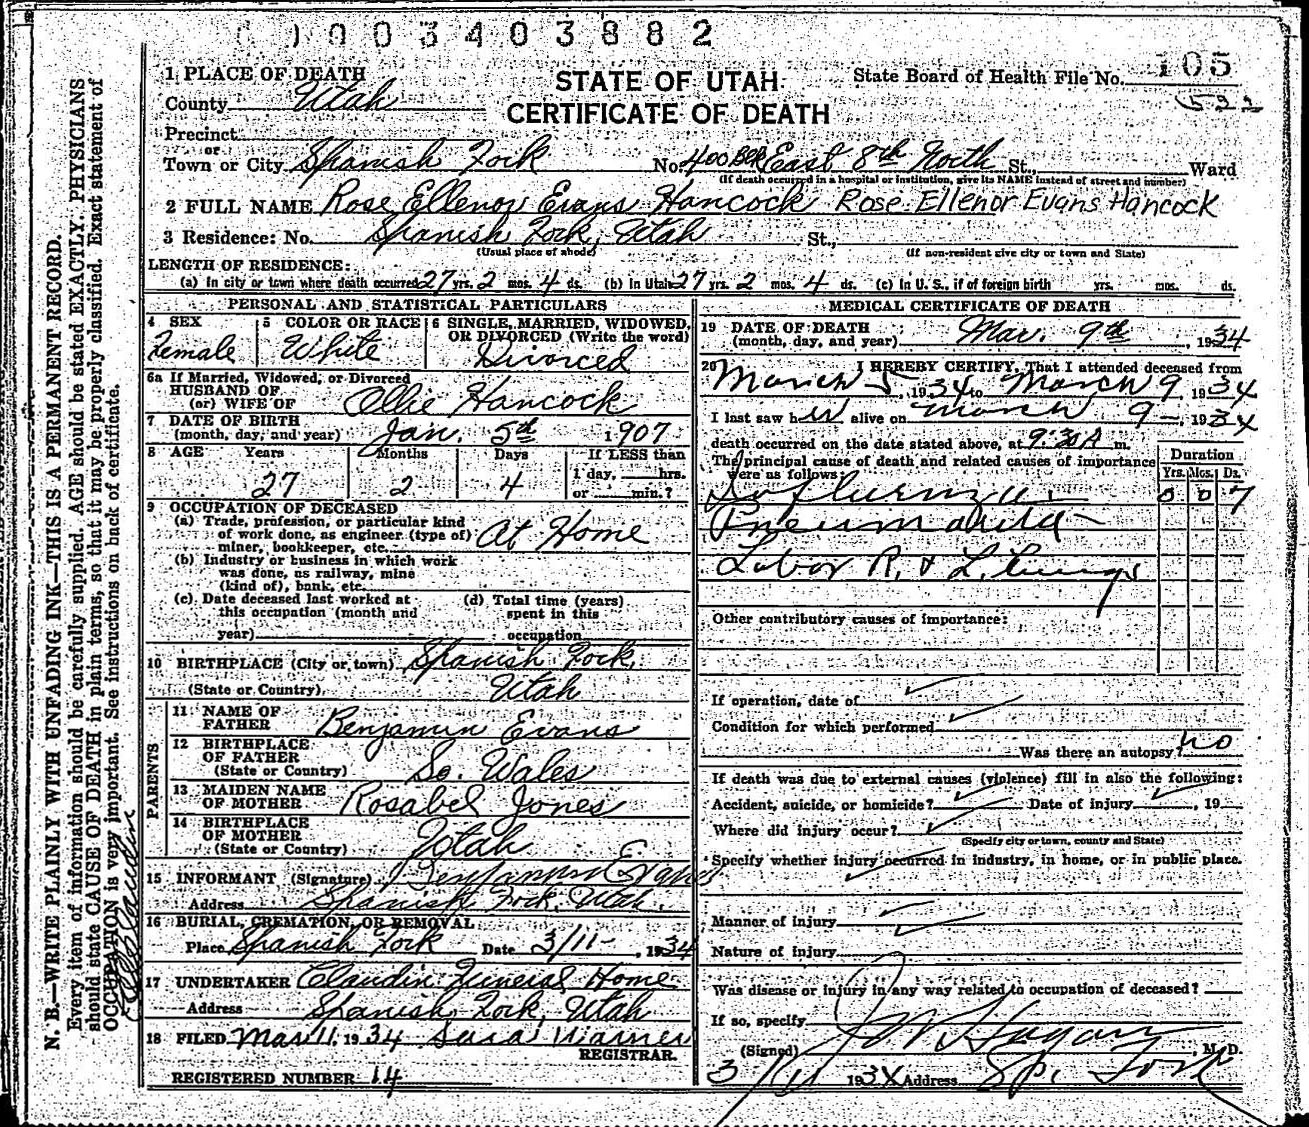 0003403882
1 PLACE OF DEATH
STATE OF UTAH
CERTIFICATE OF DEATH
State Board of Health File No. 105
522
County Utah
Precinct
or
Town or City Spanish Fork No. 400 East 8th North St., Ward
(If death occurred in a hospital or institution, give its NAME instead of street and number)
2 FULL NAME Rose Ellenor Evans Hancock Rose Ellenor Evans Hancock
3 Residence: No. Spanish Fork, Utah St.,
(Usual place of abode) (If non-resident give city or town and State)
LENGTH OF RESIDENCE:
(a) In city or town where death occurred 27 yrs. 2 mos. 4 ds. (b) In Utah 27 yrs. 2 mos. 4 ds. (c) In U. S., if of foreign birth yrs. mos. ds.
PERSONAL AND STATISTICAL PARTICULARS
4 SEX Female
5 COLOR OR RACE White
6 SINGLE, MARRIED, WIDOWED, OR DIVORCED (Write the word) Divorced
6a If Married, Widowed, or Divorced
HUSBAND OF
(or) WIFE OF Ollie Hancock
7 DATE OF BIRTH
(month, day, and year) Jan. 5th 1907
8 AGE Years Months Days If LESS than
27 2 4 1 day, hrs.
or min.?
9 OCCUPATION OF DECEASED
(a) Trade, profession, or particular kind
of work done, as engineer (type of)
miner, bookkeeper, etc. At Home
(b) Industry or business in which work
was done, as railway, mine
(kind of), bank, etc.
(c) Date deceased last worked at
this occupation (month and
year)
(d) Total time (years)
spent in this
occupation
10 BIRTHPLACE (City or town) Spanish Fork,
(State or Country) Utah
PARENTS
11 NAME OF
FATHER Benjamin Evans
12 BIRTHPLACE
OF FATHER
(State or Country) So. Wales
13 MAIDEN NAME
OF MOTHER Rosabel Jones
14 BIRTHPLACE
OF MOTHER
(State or Country) Utah
15 INFORMANT (Signature) Benjamin Evans
Address Spanish Fork, Utah.
16 BURIAL, CREMATION, OR REMOVAL
Place Spanish Fork Date 3/11- , 1934
17 UNDERTAKER Claudin Funeral Home
Address Spanish Fork, Utah
18 FILED Mar 11, 1934 Sara Warner
REGISTRAR.
REGISTERED NUMBER 14
MEDICAL CERTIFICATE OF DEATH
19 DATE OF DEATH
(month, day, and year) Mar. 9th , 1934
20 I HEREBY CERTIFY, That I attended deceased from
March 5, 1934 to March 9, 1934
I last saw her alive on March 9-, 1934
death occurred on the date stated above, at 9:30 A m.
The principal cause of death and related causes of importance
were as follows:
Duration
Yrs. Mos. Ds.
Influenza 0 0 7
Pneumonia
Lobar R. & L. Lungs
Other contributory causes of importance:
If operation, date of
Condition for which performed
Was there an autopsy? no
If death was due to external causes (violence) fill in also the following:
Accident, suicide, or homicide? Date of injury , 19
Where did injury occur?
(Specify city or town, county and State)
Specify whether injury occurred in industry, in home, or in public place.
Manner of injury
Nature of injury
Was disease or injury in any way related to occupation of deceased?
If so, specify
(Signed) Hagan , M. D.
3/11 1934 Address Sp. Fork
N. B.—WRITE PLAINLY WITH UNFADING INK—THIS IS A PERMANENT RECORD.
Every item of information should be carefully supplied. AGE should be stated EXACTLY. PHYSICIANS
should state CAUSE OF DEATH in plain terms, so that it may be properly classified. Exact statement of
OCCUPATION is very important. See instructions on back of certificate.